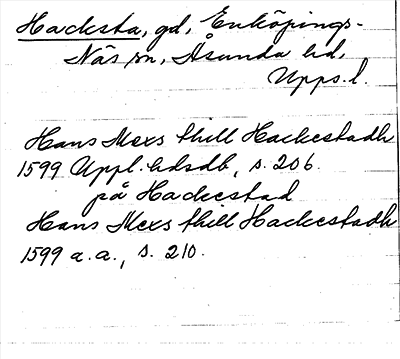 Hacksta, gd, Enköpings-
Näs sn, Åsunda hd,
Upps. l.
Hans Mexs thill Hackestadh
1599 Uppl. hdsdb, s. 206.
på Hackestad
Hans Mexs thill Hackestadh
1599 a. a., s. 210.